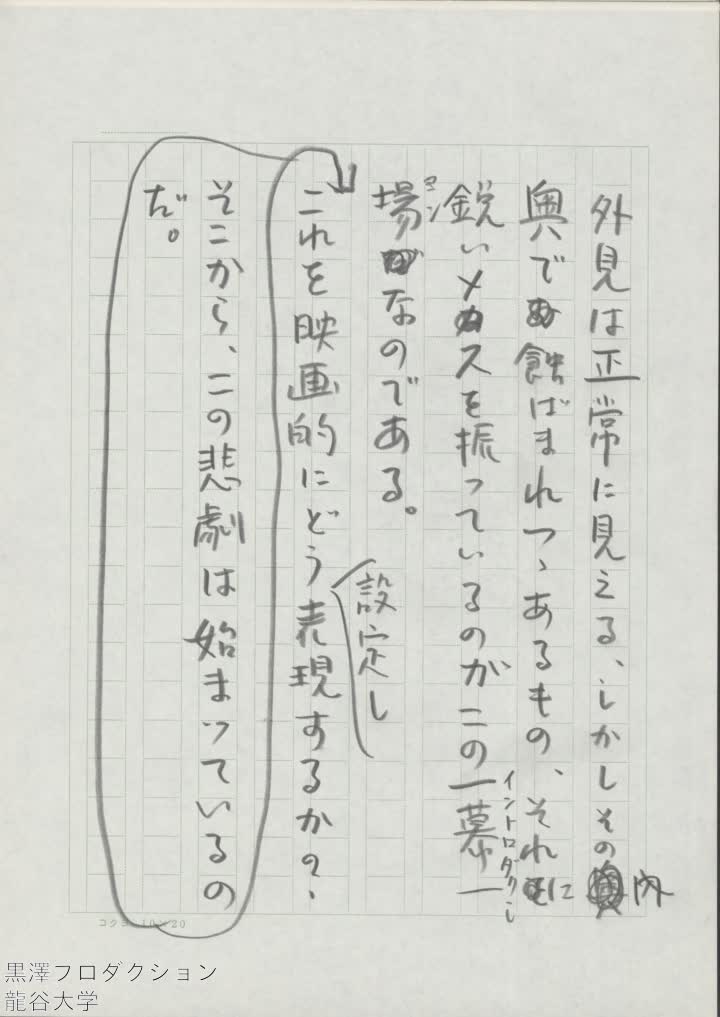 外見は正常に見える、しかしその内
奥で蝕ばまれつゝあるもの、それに
鋭いメスを振っているのがこの一幕一
イントロダクし
場なのである。
設定し
これを映画的にどう表現するか?、
そこから、この悲劇は始まっているの
だ。
コクヨ 10×20
黒澤プロダクション
龍谷大学